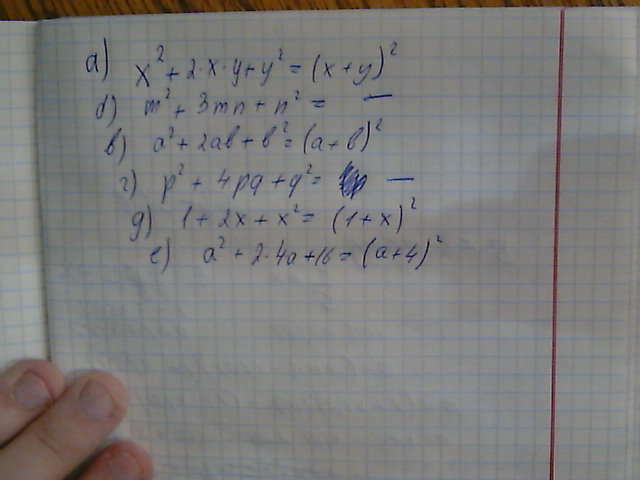 а) x² + 2·x·y + y² = (x + y)²
б) m² + 3mn + n² = —
в) a² + 2ab + b² = (a + b)²
г) p² + 4pq + q² = —
д) 1 + 2x + x² = (1 + x)²
е) a² + 2·4a + 16 = (a + 4)²